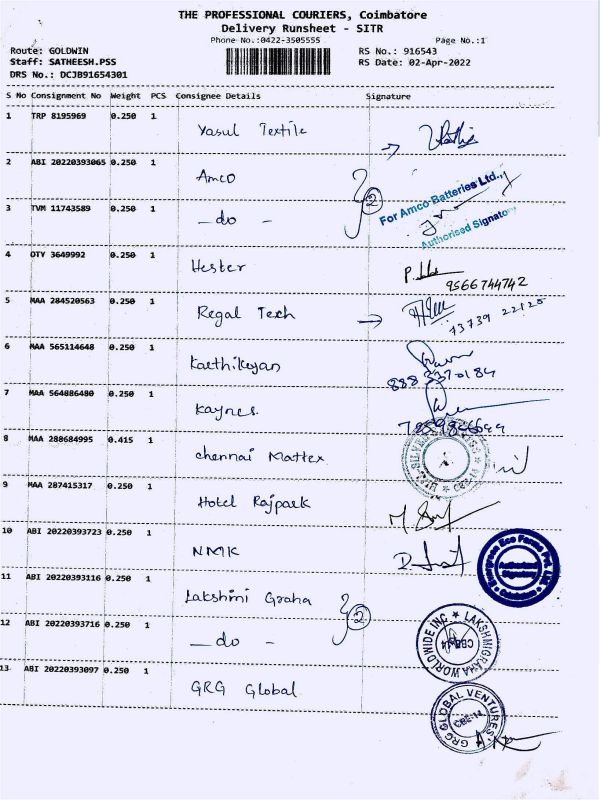 THE PROFESSIONAL COURIERS, Coimbatore
Delivery Runsheet - SITR
Phone No.:0422-3505555 Page No.:1
Route: GOLDWIN RS No.: 916543
Staff: SATHEESH.PSS RS Date: 02-Apr-2022
DRS No.: DCJB91654301
S No Consignment No Weight PCS Consignee Details Signature
1 TRP 8195969 0.250 1 Yasul Textile
2 ABI 20220393065 0.250 1 Amco
2
For Amco Batteries Ltd.,
Authorised Signatory
3 TVM 11743589 0.250 1 - do -
4 OTY 3649992 0.250 1 Hester
9566744742
5 MAA 284520563 0.250 1 Regal Tech
73739 22125
6 MAA 565114648 0.250 1 Karthikeyan
888 3370184
7 MAA 564886480 0.250 1 Kaynes
8 MAA 288684995 0.415 1 chennai Mattex
9 MAA 287415317 0.250 1 Hotel Rajpark
10 ABI 20220393723 0.250 1 NMK
Evergreen Eco Farms Pvt. Ltd.
Authorised
Signatory
11 ABI 20220393116 0.250 1 Lakshmi Graha
2
12 ABI 20220393716 0.250 1 - do -
LAKSHMIGRAHA WORLDWIDE INC
CBE-14
13 ABI 20220393097 0.250 1 GRG Global
GRG GLOBAL VENTURES
CBE-14